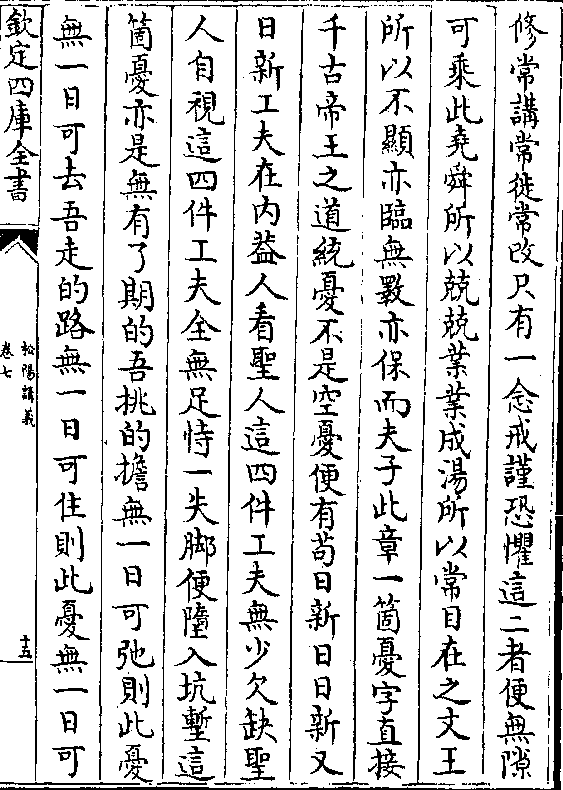 修常講常徙常改只有一念戒謹恐懼這二者便無隙
可乘此堯舜所以兢兢業業成湯所以常目在之文王
所以不顯亦臨無斁亦保而夫子此章一箇憂字直接
千古帝王之道統憂不是空憂便有茍日新日日新又
日新工夫在内葢人看聖人這四件工夫無少欠缺聖
人自視這四件工夫全無足恃一失脚便墮入坑塹這
箇憂亦是無有了期的吾挑的擔無一日可弛則此憂
無一日可去吾走的路無一日可住則此憂無一日可
欽定四庫全書
松陽講義
卷七
十五